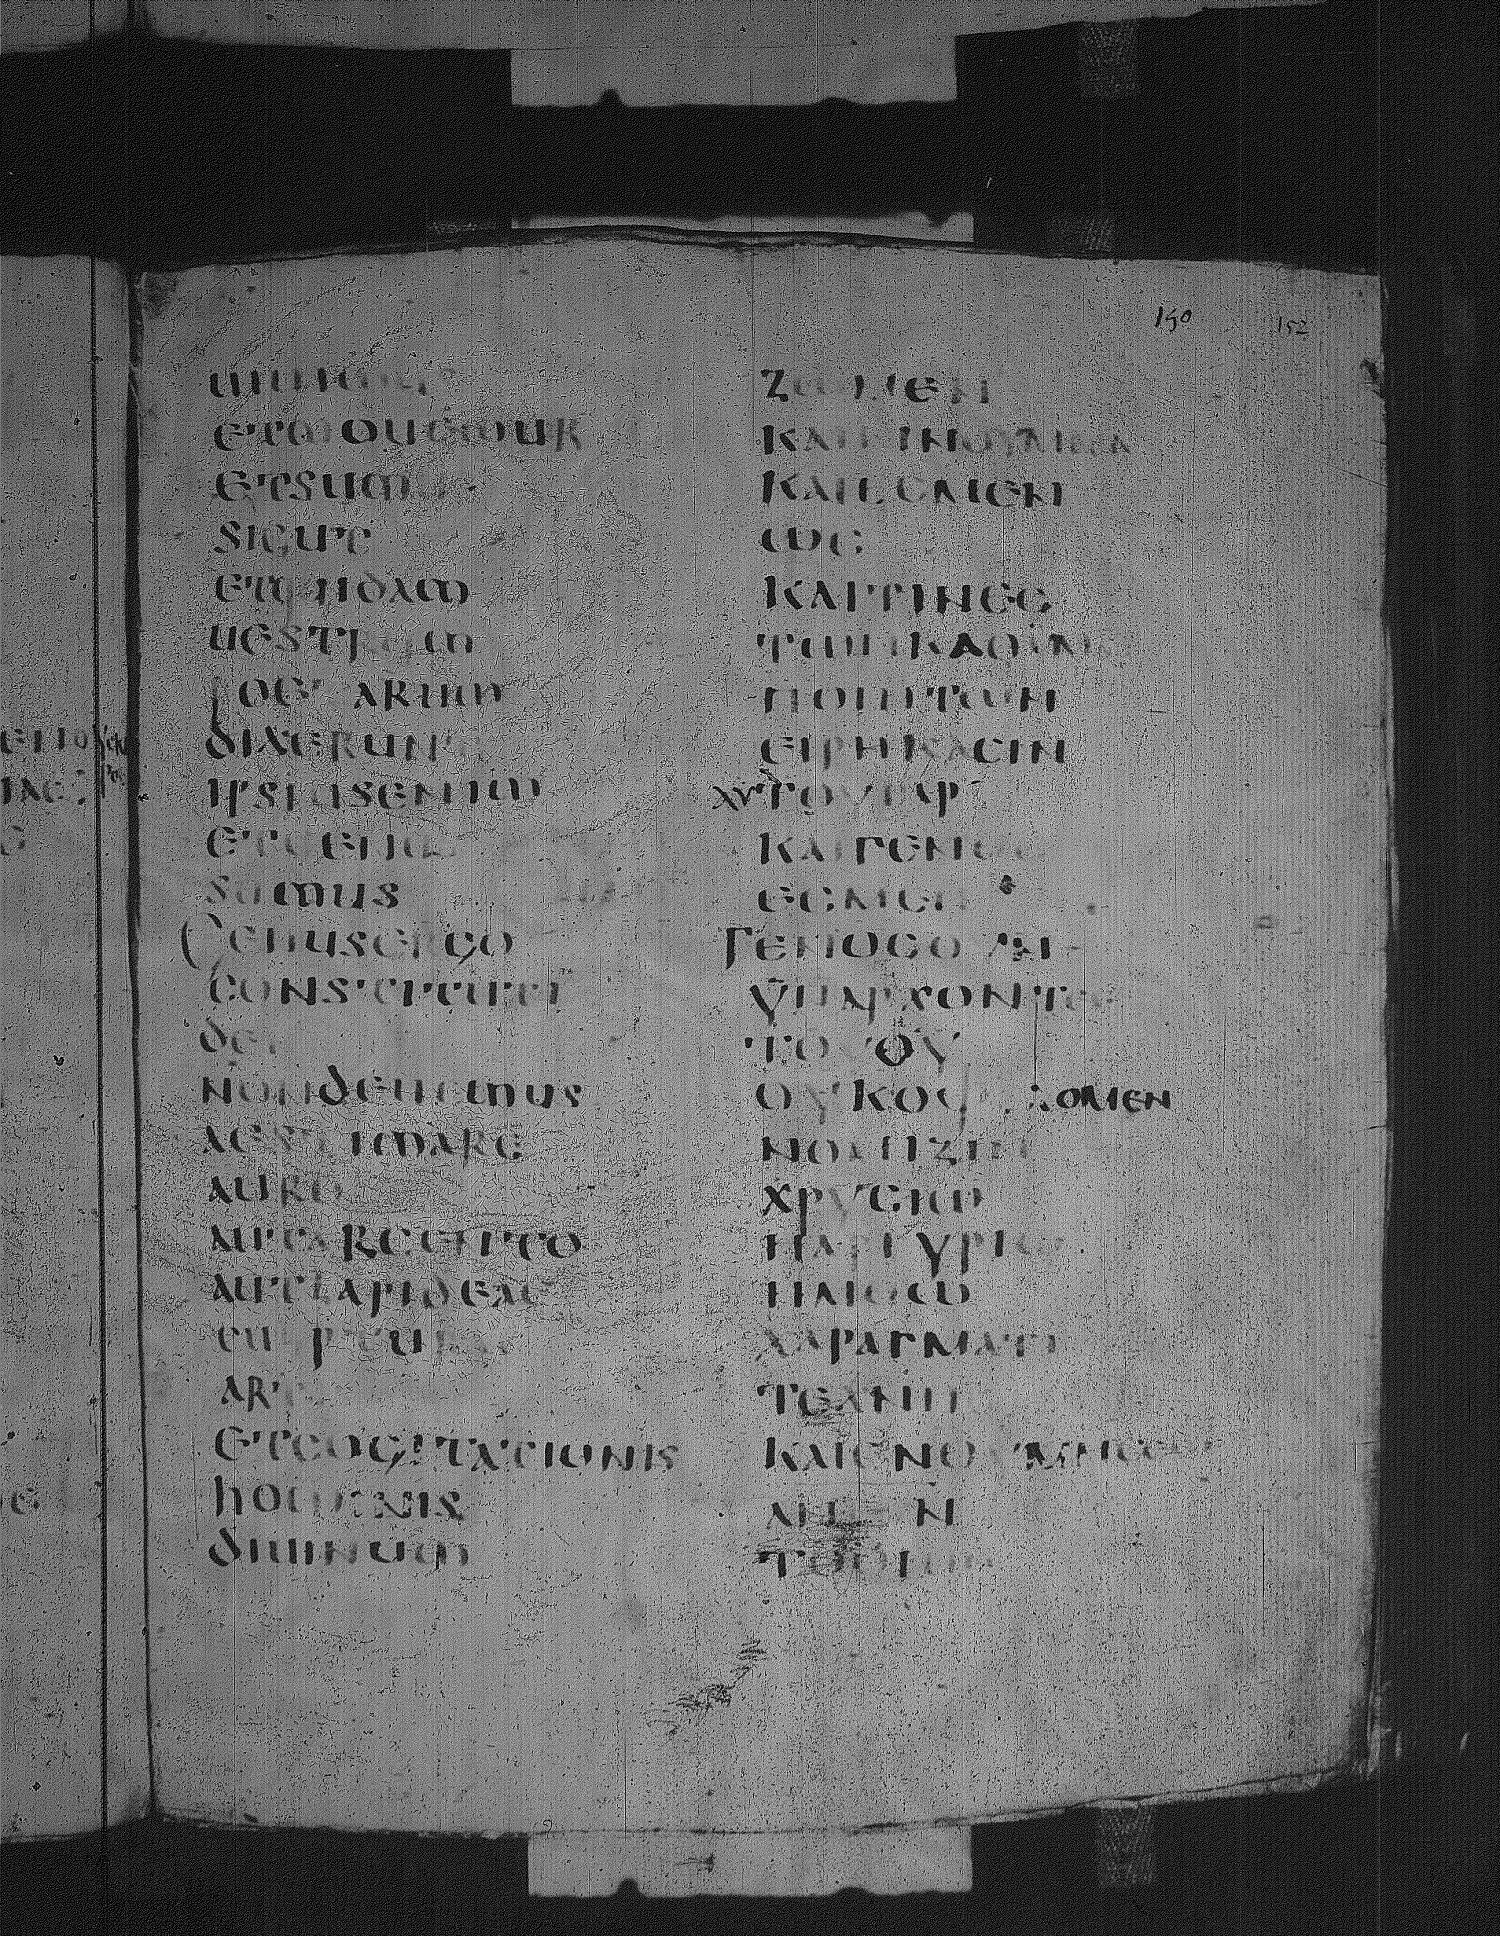 uiuimus
et mouemur
et sumus
sicut
et quidam
uestrum
poetarum
dixerunt
ipsius enim
et genus
sumus
Genus ergo
constituti
dei
non debemus
aestimare
auro
aut argento
aut lapideae
artis
et cogitationis
hominis
diuinum
150 152
ζωμεν
και κινουμεθα
και εσμεν
ως
και τινες
των καθ
ποιητων
ειρηκασιν
του γαρ
και γενος
εσμεν
Γενος ουν
υπαρχοντες
του θυ
ουκ οφιλομεν
νομιζειν
χρυσιω
η αργυριω
η λιθω
χαραγματι
τεχνη
και
το